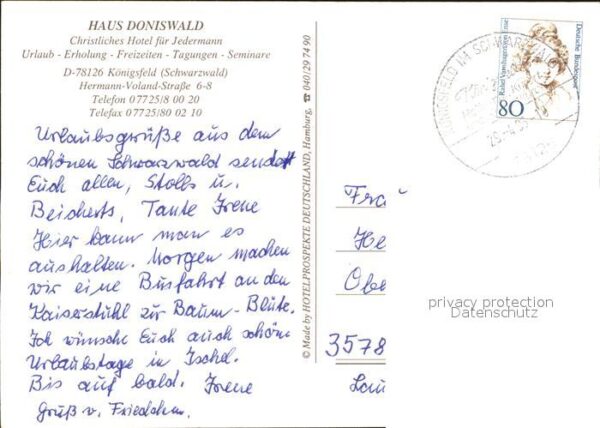 HAUS DONISWALD
Christliches Hotel für Jedermann
Urlaub - Erholung - Freizeiten - Tagungen - Seminare
D-78126 Königsfeld (Schwarzwald)
Hermann-Voland-Straße 6-8
Telefon 07725/8 00 20
Telefax 07725/80 02 10
Urlaubsgrüße aus dem
schönen Schwarzwald sendet
Euch allen, Stolls u.
Beicherts, Tante Irene
Hier kann man es
aushalten. Morgen machen
wir eine Busfahrt an den
Kaiserstuhl zur Baum-Blüte.
Ich wünsche Euch auch schöne
Urlaubstage in Ischgl.
Bis auf bald. Irene
Gruß v. Friedchen.
© Made by HOTELPROSPEKTE DEUTSCHLAND, Hamburg, ☎ 040/29 74 90
Rahel Varnhagen von Ense
Deutsche Bundespost
80
78126
Fra
He
Obe
3578
Lau
privacy protection
Datenschutz